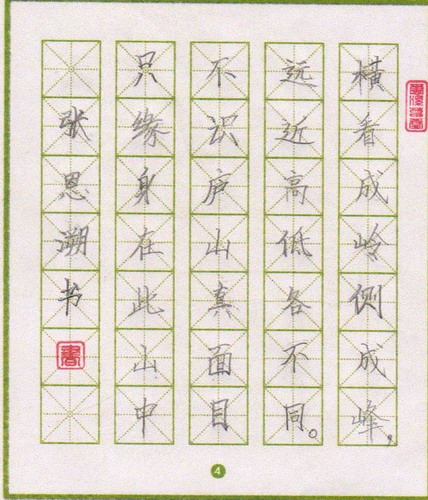 横看成岭侧成峰，
远近高低各不同。
不识庐山真面目
只缘身在此山中
张恩溯书
書
4